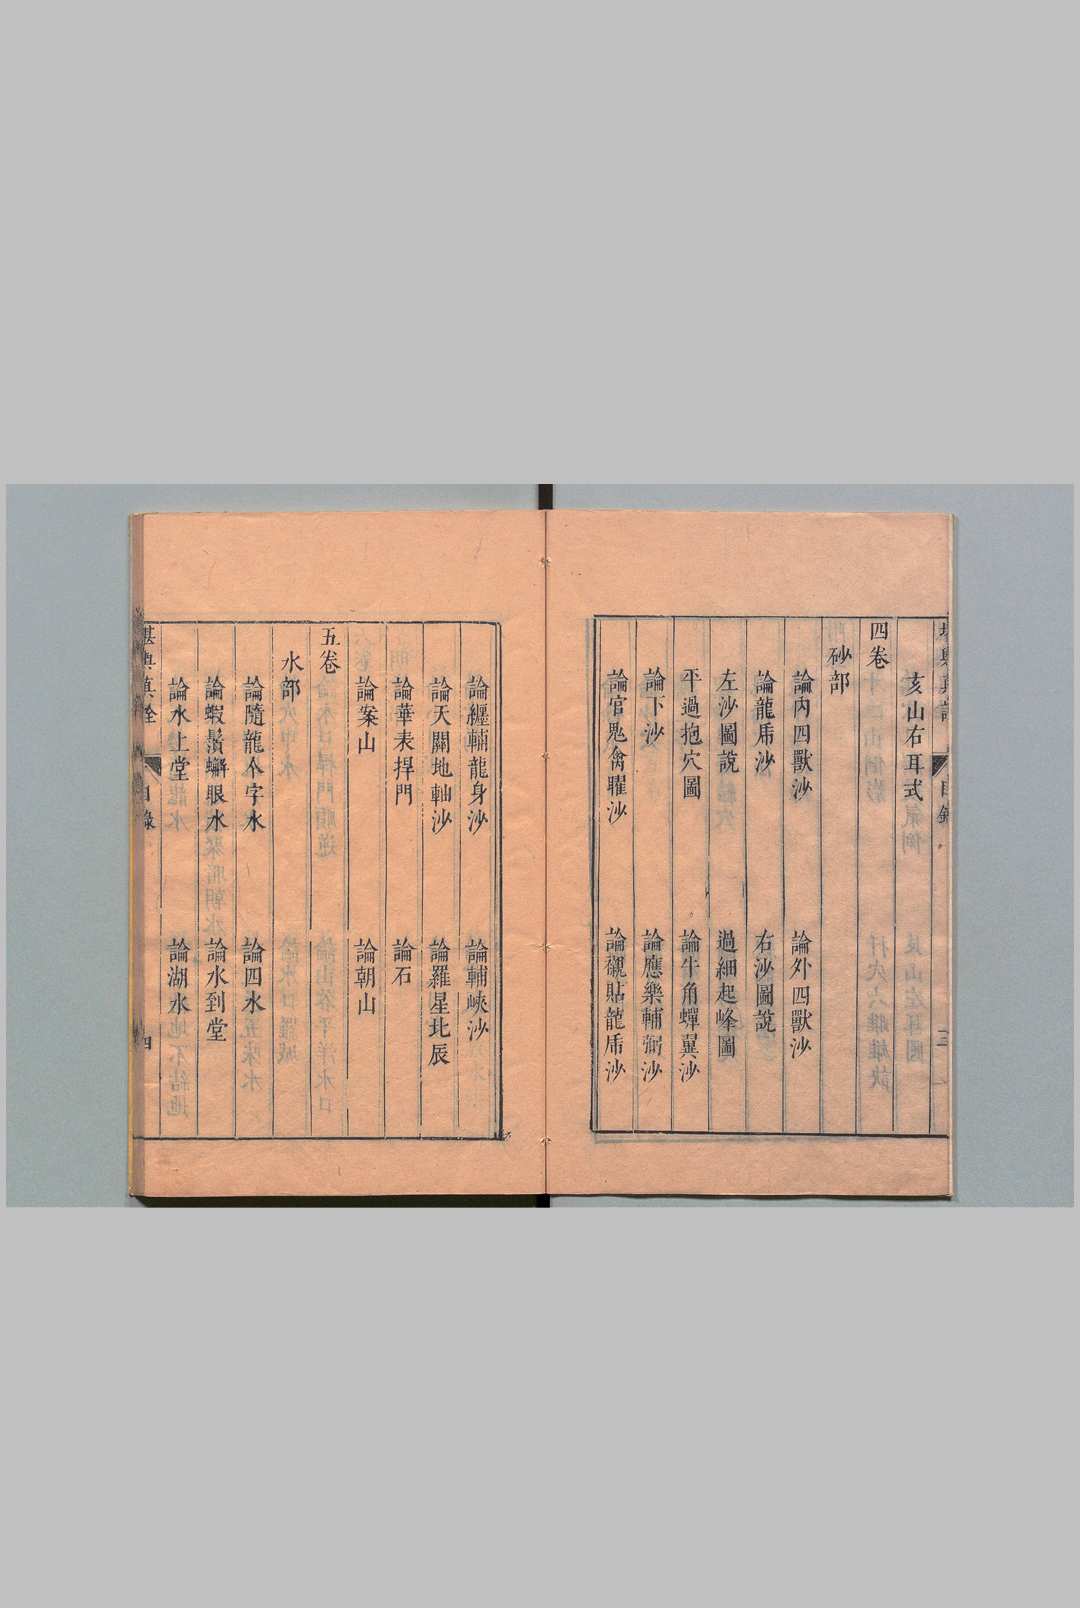 亥山右耳式
四卷
砂部
論內四獸沙
論外四獸沙
論龍虎沙
右沙圖說
左沙圖說
過細起峰圖
平過抱穴圖
論牛角蟬翼沙
論下沙
論應樂輔弼沙
論官鬼禽曜沙
論襯貼龍虎沙
論纏輔龍身沙
論輔峽沙
論天關地軸沙
論羅星北辰
論華表捍門
論石
論案山
論朝山
五卷
水部
論隨龍人字水
論四水
論蝦鬚蠏眼水
論水到堂
論水上堂
論湖水
堪輿真詮
目錄
四